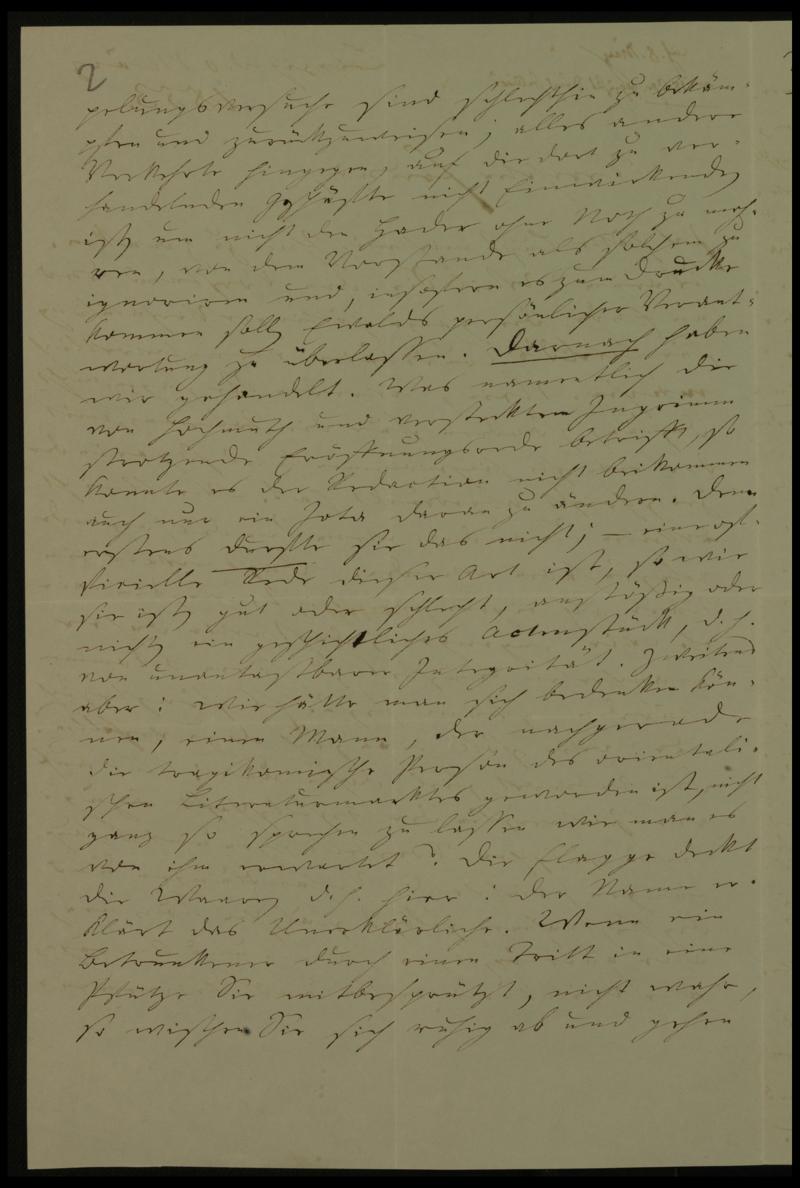 2
pelungsversuche sind schlechthin zu bekäm-
pfen und zurückzuweisen; alles andere
Verkehrte hingegen, auf die dort zu ver-
handelnden Geschäfte nicht Einwirkende,
ist, um nicht den Hader ohne Noth zu meh-
ren, von dem Vorstande als solchem zu
ignoriren und, insofern es zum Drucke
kommen soll, Ewalds persönlicher Verant-
wortung zu überlassen. Darnach haben
wir gehandelt. Was namentlich die
von Hochmuth und verstecktem Ingrimm
strotzende Eröffnungsrede betrifft, so
konnte es der Redaction nicht beikommen
auch nur ein Jota daran zu ändern. Denn
erstens durfte sie das nicht; – eine of-
ficielle Rede dieser Art ist, so wie
sie ist, gut oder schlecht, anstößig oder
nicht, ein geschichtliches Actenstück, d. h.
von unantastbarer Integrität. Zweitens
aber: wie hätte man sich bedenken kön-
nen, einen Mann, der nachgerade
die tragikomische Person des orientali-
schen Literaturmarktes geworden ist, nicht
ganz so sprechen zu lassen wie man es
von ihm erwartet? Die Flagge deckt
die Waare, d. h. hier: der Name er-
klärt das Unerklärliche. Wenn ein
Betrunkener durch einen Tritt in eine
Pfütze Sie mitbespritzt, nicht wahr,
so wischen Sie sich ruhig ab und gehen